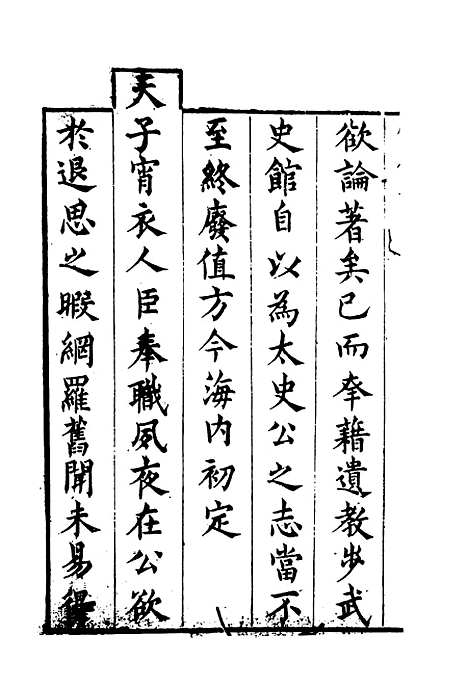 欲論著矣已而奉藉遺教步武
史館自以為太史公之志當不
至終廢值方今海内初定
天子宵衣人臣奉職夙夜在公欲
於退思之暇網羅舊聞未易得